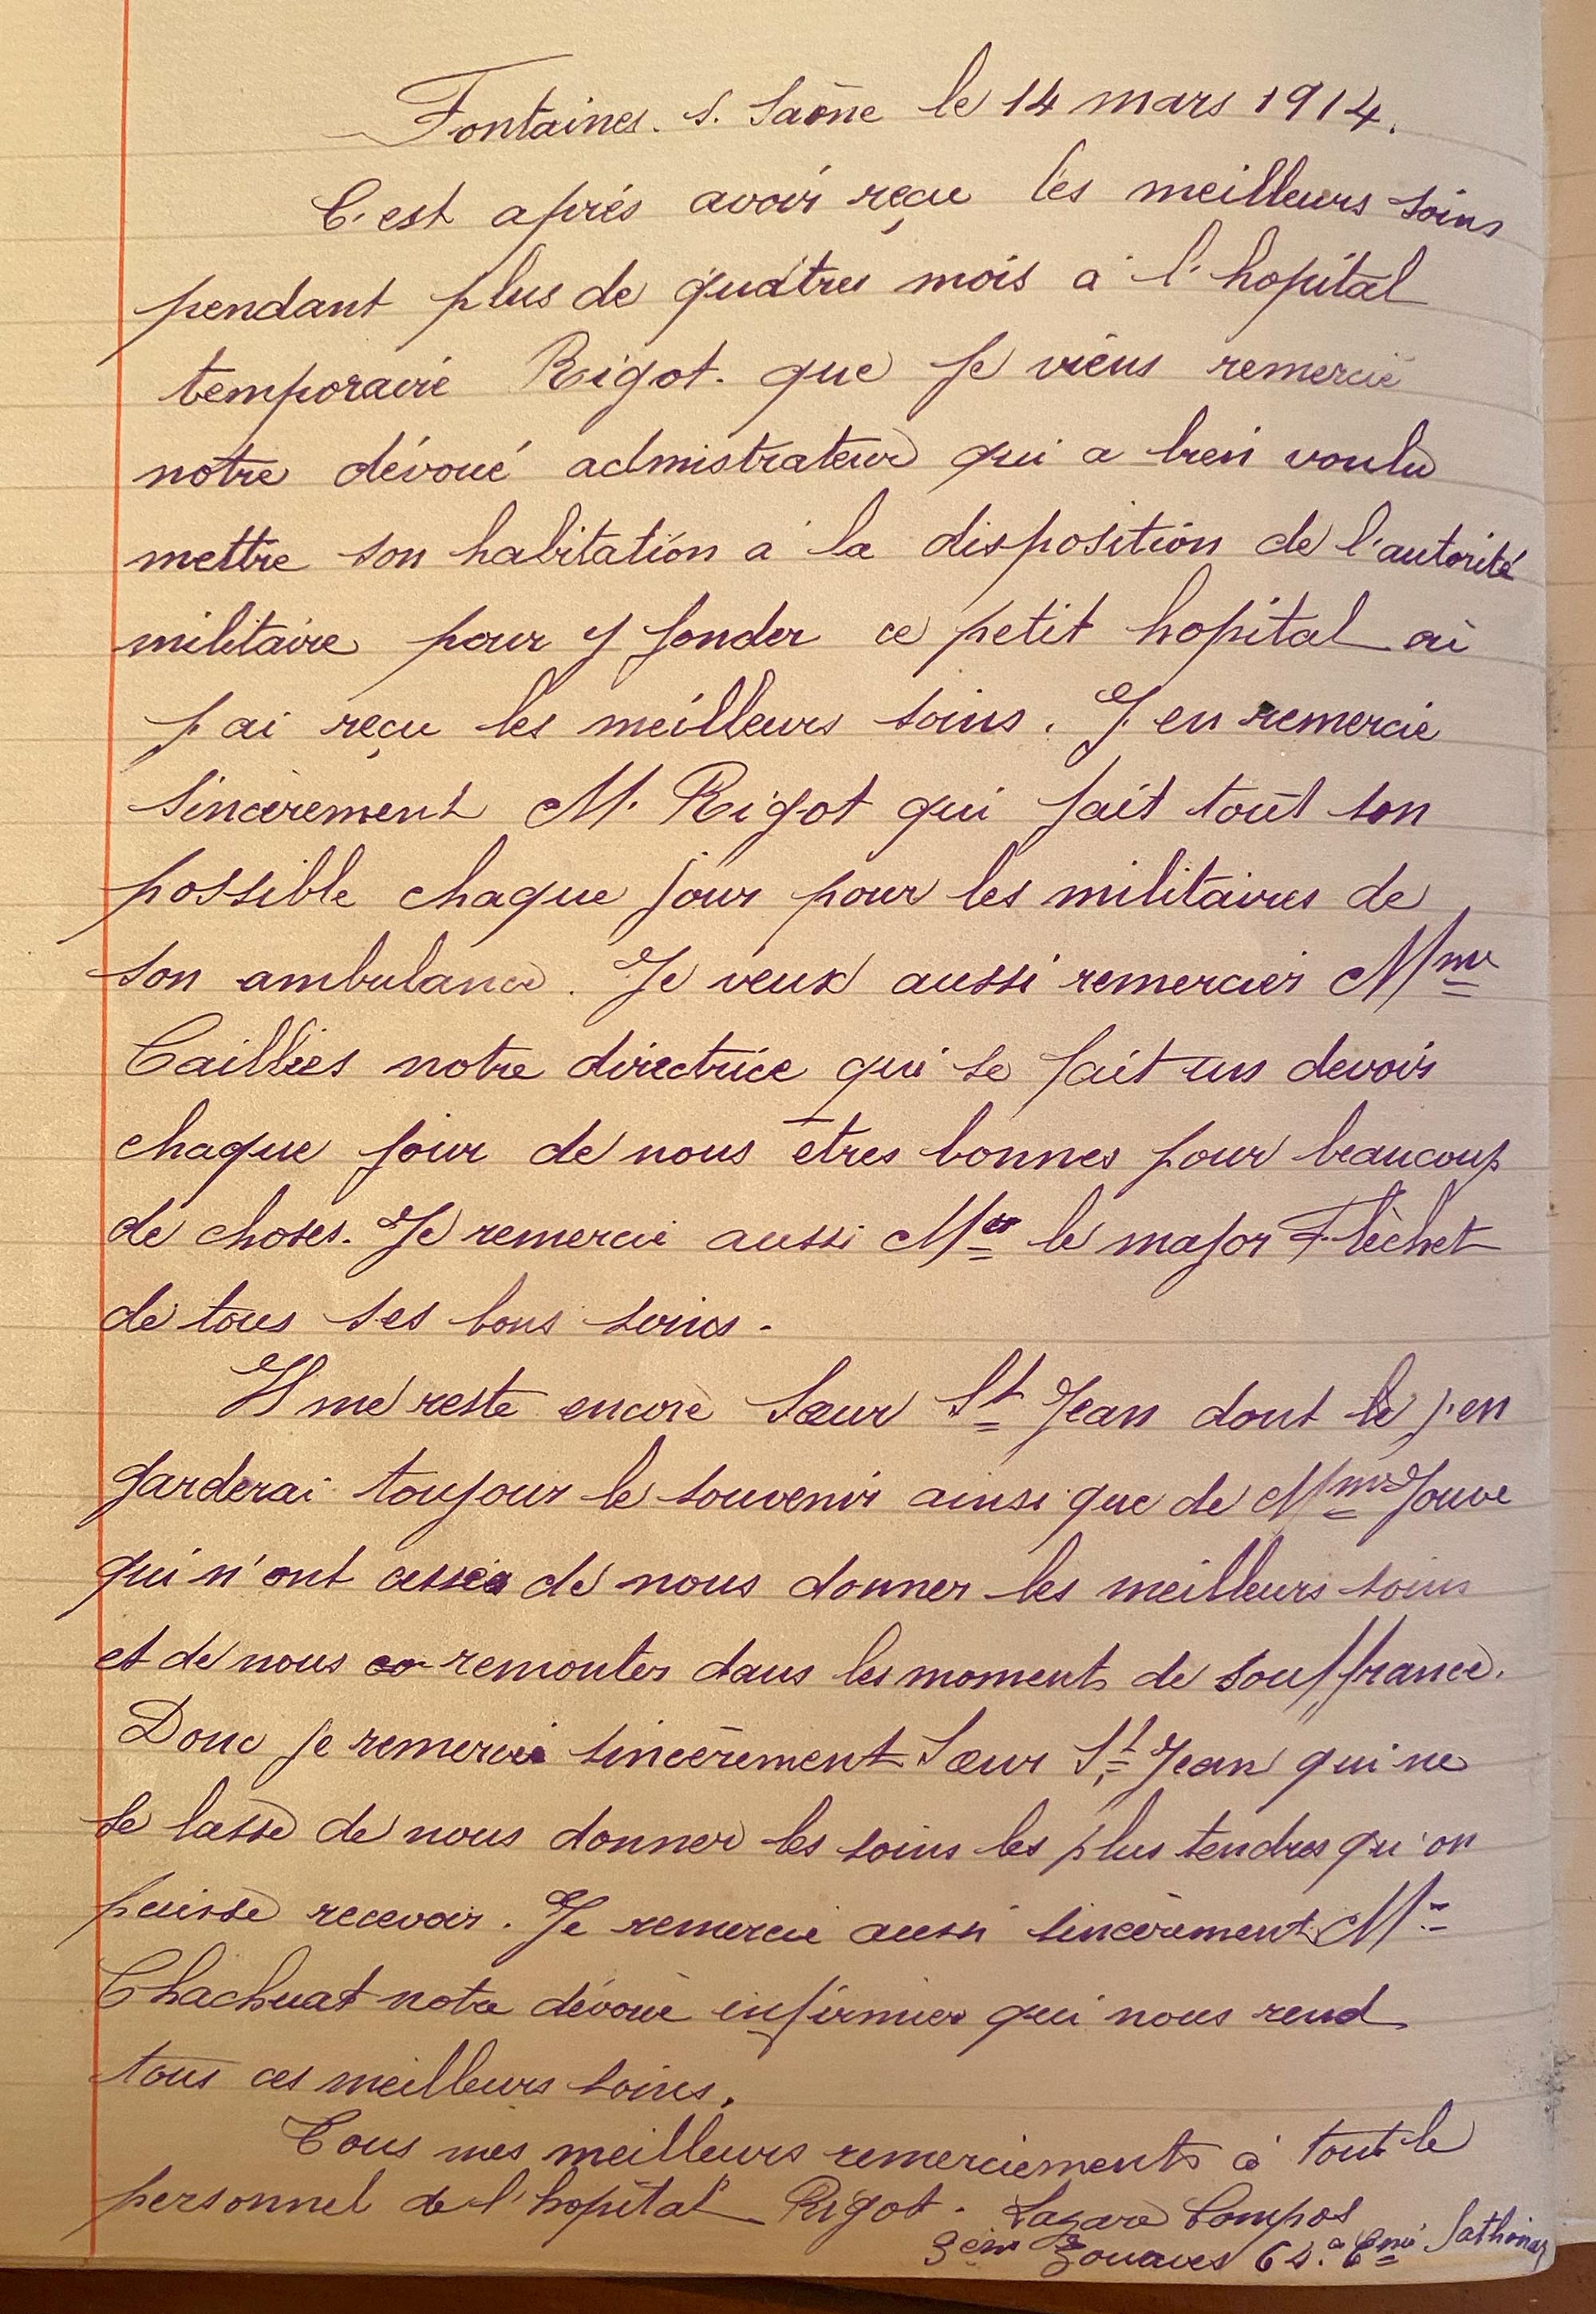 Fontaines. s. Saône le 14 mars 1914.
C'est aprés avoir reçu les meilleurs soins
pendant plus de quatres mois a l'hopital
temporaire Rigot. que je viens remercie
notre dévoué admistrateur qui a bien voulu
mettre son habitation a la disposition de l'autorité
militaire pour y fonder ce petit hopital où
j'ai reçu les meilleurs soins. J'en remercie
sincèrement M. Rigot qui fait tout son
possible chaque jour pour les militaires de
son ambulance. Je veux aussi remercier Mme
notre directrice qui se fait un devoir
chaque jour de nous êtres bonnes pour beaucoup
de choses. Je remercie aussi Mr le major Flèchet
de tous ses bons soins.
Il me reste encore Sœur St Jean dont le j'en
garderai toujour le souvenir ainsi que de Mme Jouve
qui n'ont cessés de nous donner les meilleurs soins
et de nous remonter dans les moments de souffrance.
Donc je remercie sincèrement Sœur St Jean qui ne
se lasse de nous donner les soins les plus tendres qu'on
puisse recevoir. Je remercie aussi sincèrement Mr
Chachuat notre dévoué infirmier qui nous rend
tous ces meilleurs soins.
Tous mes meilleurs remerciements à tout le
personnel de l'hopital Rigot. Lazare Campos
3eme Zouaves Sathonay